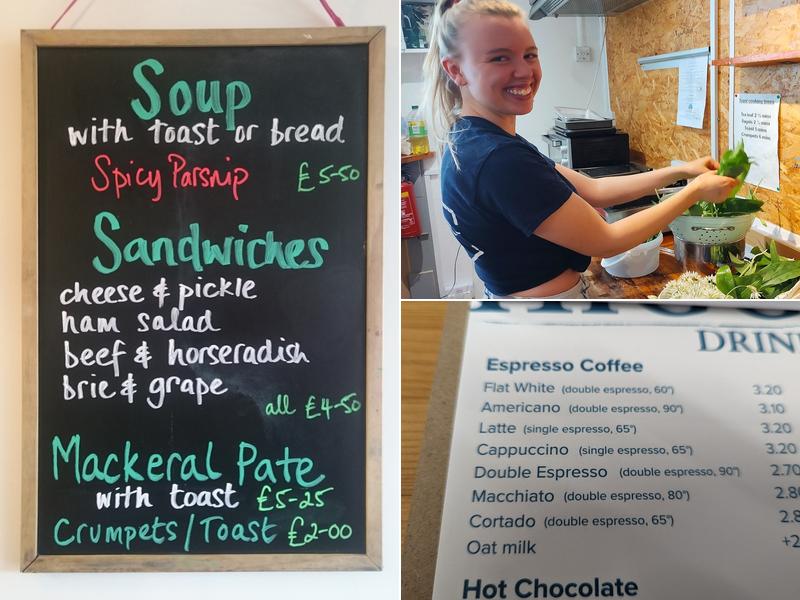 Soup
with toast or bread
Spicy Parsnip £5-50
Sandwiches
cheese & pickle
ham salad
beef & horseradish
brie & grape
all £4-50
Mackeral Pate
with toast £5-25
Crumpets/Toast £2-00
DRIN
Espresso Coffee
Flat White (double espresso, 60°) 3.20
Americano (double espresso, 90°) 3.10
Latte (single espresso, 65°) 3.20
Cappuccino (single espresso, 65°) 3.20
Double Espresso (double espresso, 90°) 2.70
Macchiato (double espresso, 80°) 2.80
Cortado (double espresso, 65°) 2.8
Oat milk +2
Hot Chocolate